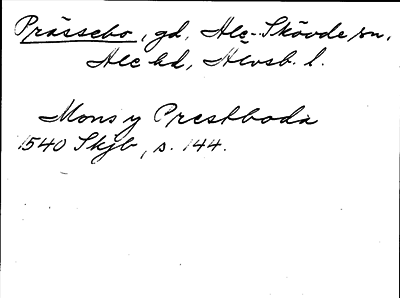 Prässebo, gd, Ale-Skövde sn,
Ale hd, Älvsb. l.
Mons y Prestboda
1540 Skjb, s. 144.